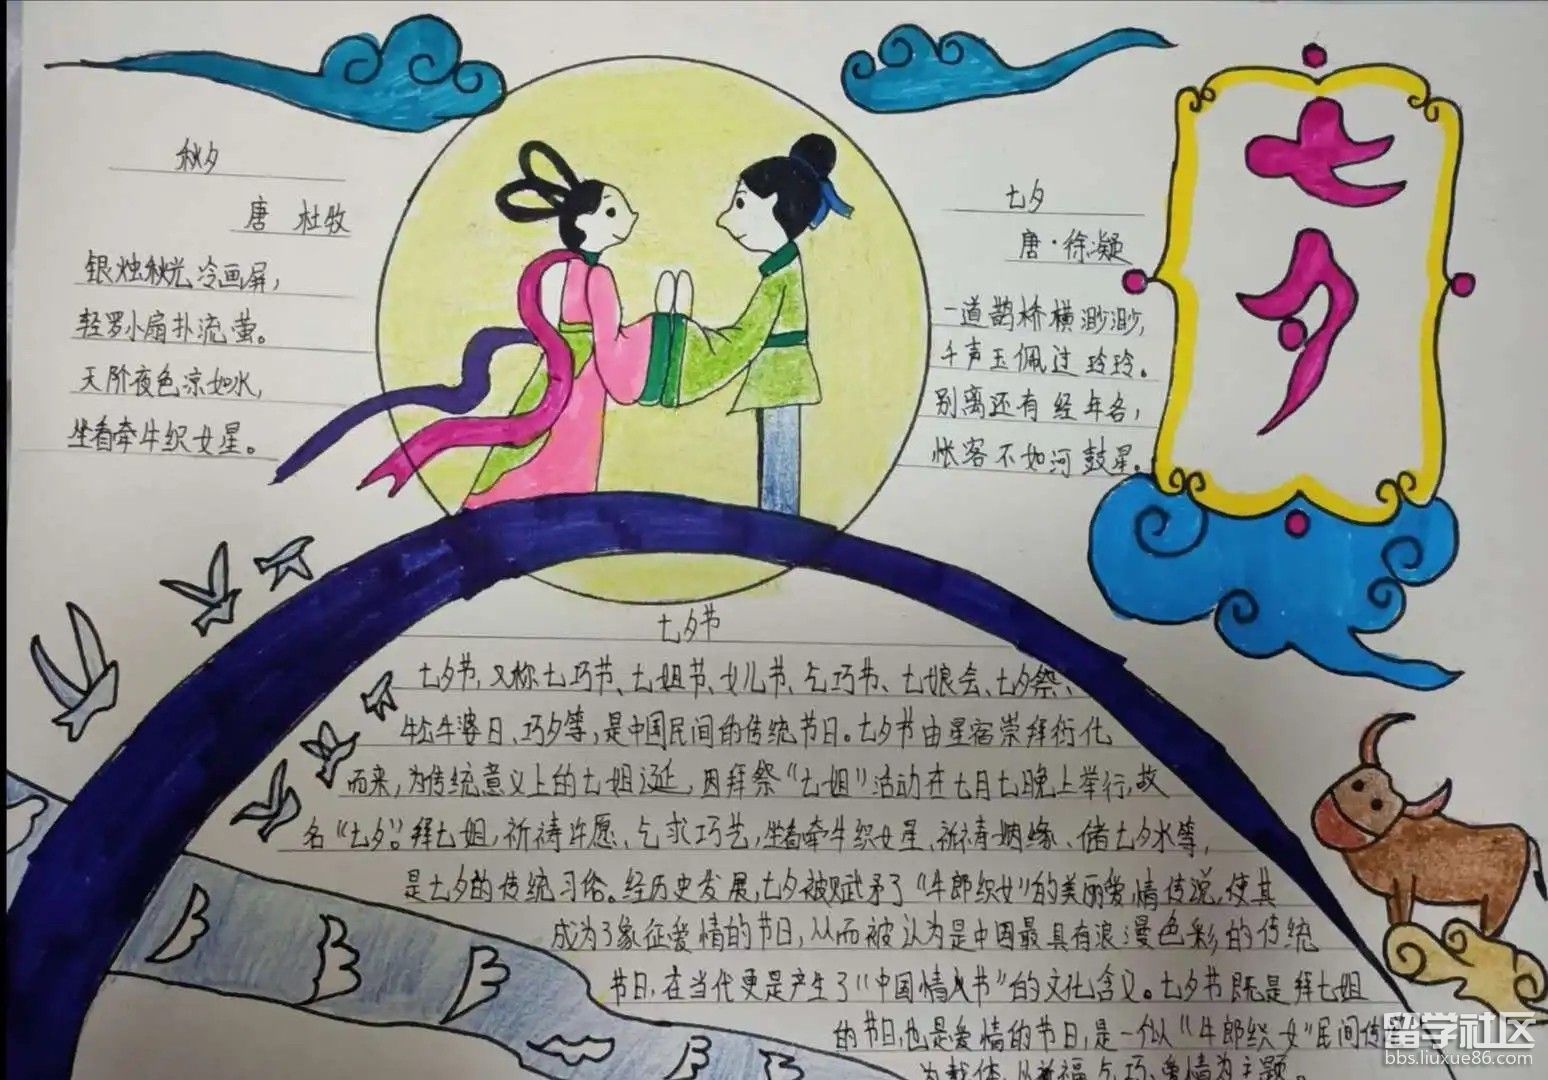 秋夕
唐 杜牧
银烛秋光冷画屏,
轻罗小扇扑流萤。
天阶夜色凉如水,
坐看牵牛织女星。
七夕
唐·徐凝
一道鹊桥横渺渺,
千声玉佩过玲玲。
别离还有经年各,
怅客不如河鼓星。
七夕
七夕节
七夕节,又称七巧节、七姐节、女儿节、乞巧节、七娘会、七夕祭、
牛公牛婆日、巧夕等,是中国民间的传统节日。七夕节由星宿崇拜衍化
而来,为传统意义上的七姐诞,因拜祭“七姐”活动在七月七晚上举行,故
名“七夕”。拜七姐,祈祷许愿、乞求巧艺,坐看牵牛织女星、祈祷姻缘、储七夕水等,
是七夕的传统习俗。经历史发展,七夕被赋予了“牛郎织女”的美丽爱情传说,使其
成为了象征爱情的节日,从而被认为是中国最具有浪漫色彩的传统
节日,在当代更是产生了“中国情人节”的文化含义。七夕节既是拜七姐
的节日,也是爱情的节日,是一个以“牛郎织女”民间传
为载体,以祈福、乞巧、爱情为主题。
留学社区
bbs.liuxue86.com